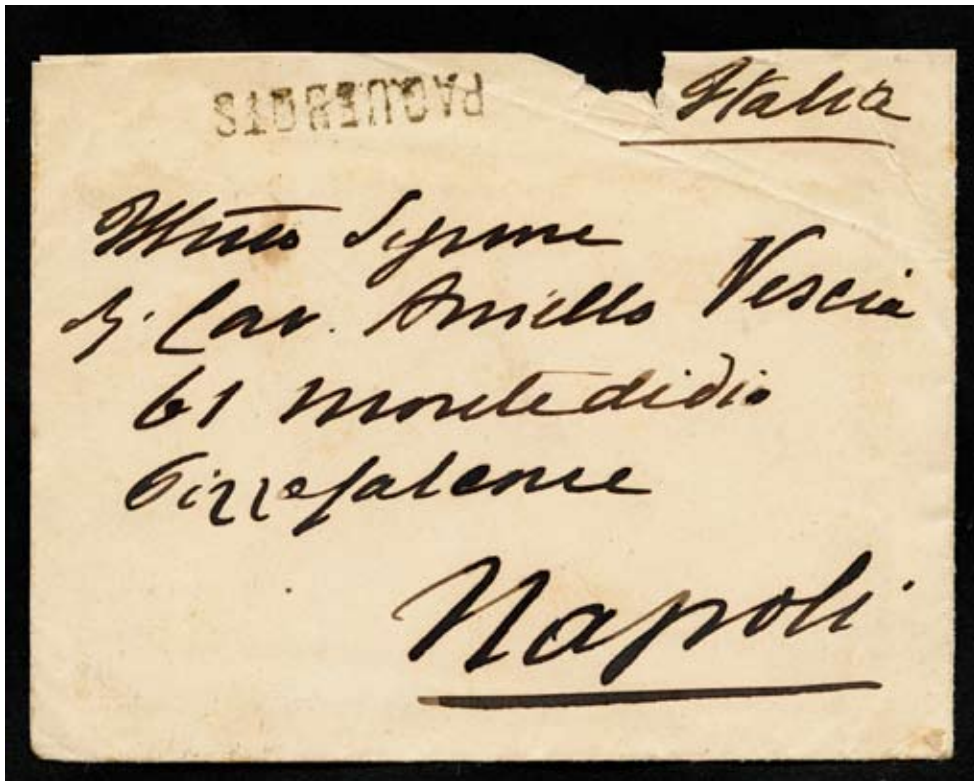 PAQUEBOTS
Italia
Illmo Signore
Cav. Aniello Vescia
61 Montedidio
Pizzofalcone
Napoli